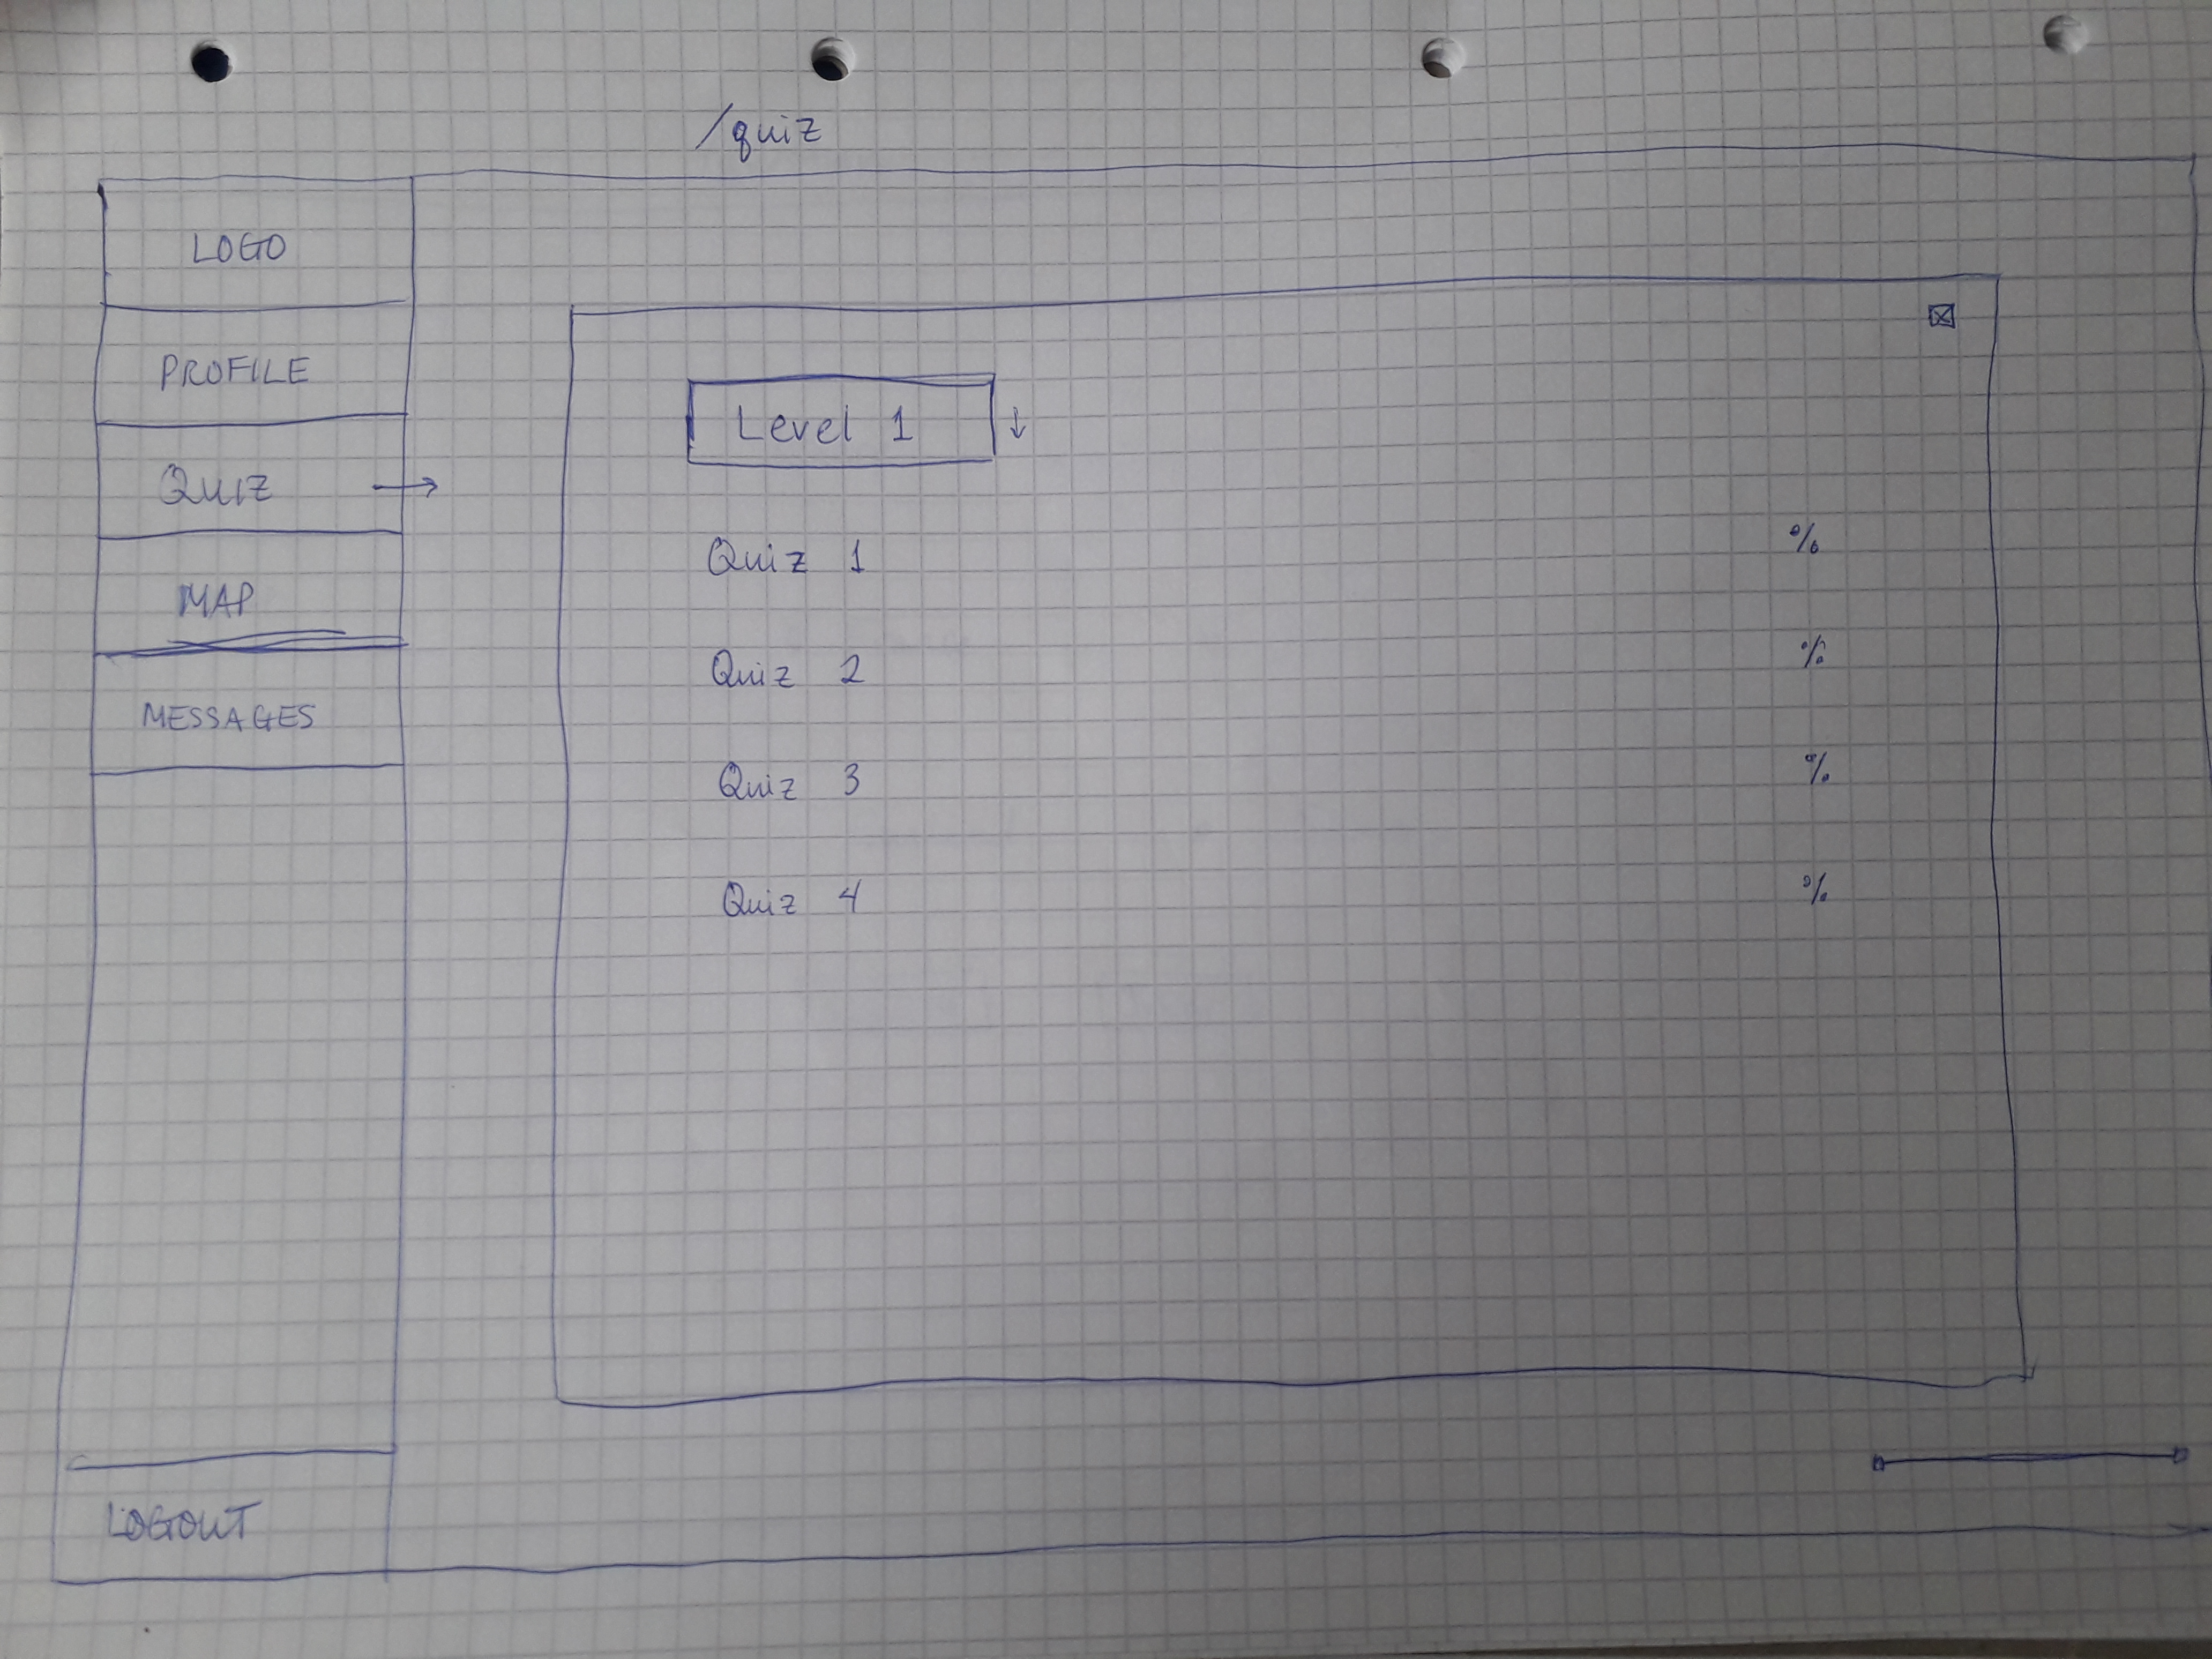 /quiz
LOGO
PROFILE
QUIZ →
MAP
MESSAGES
LOGOUT
Level 1 ↓
Quiz 1 %
Quiz 2 %
Quiz 3 %
Quiz 4 %